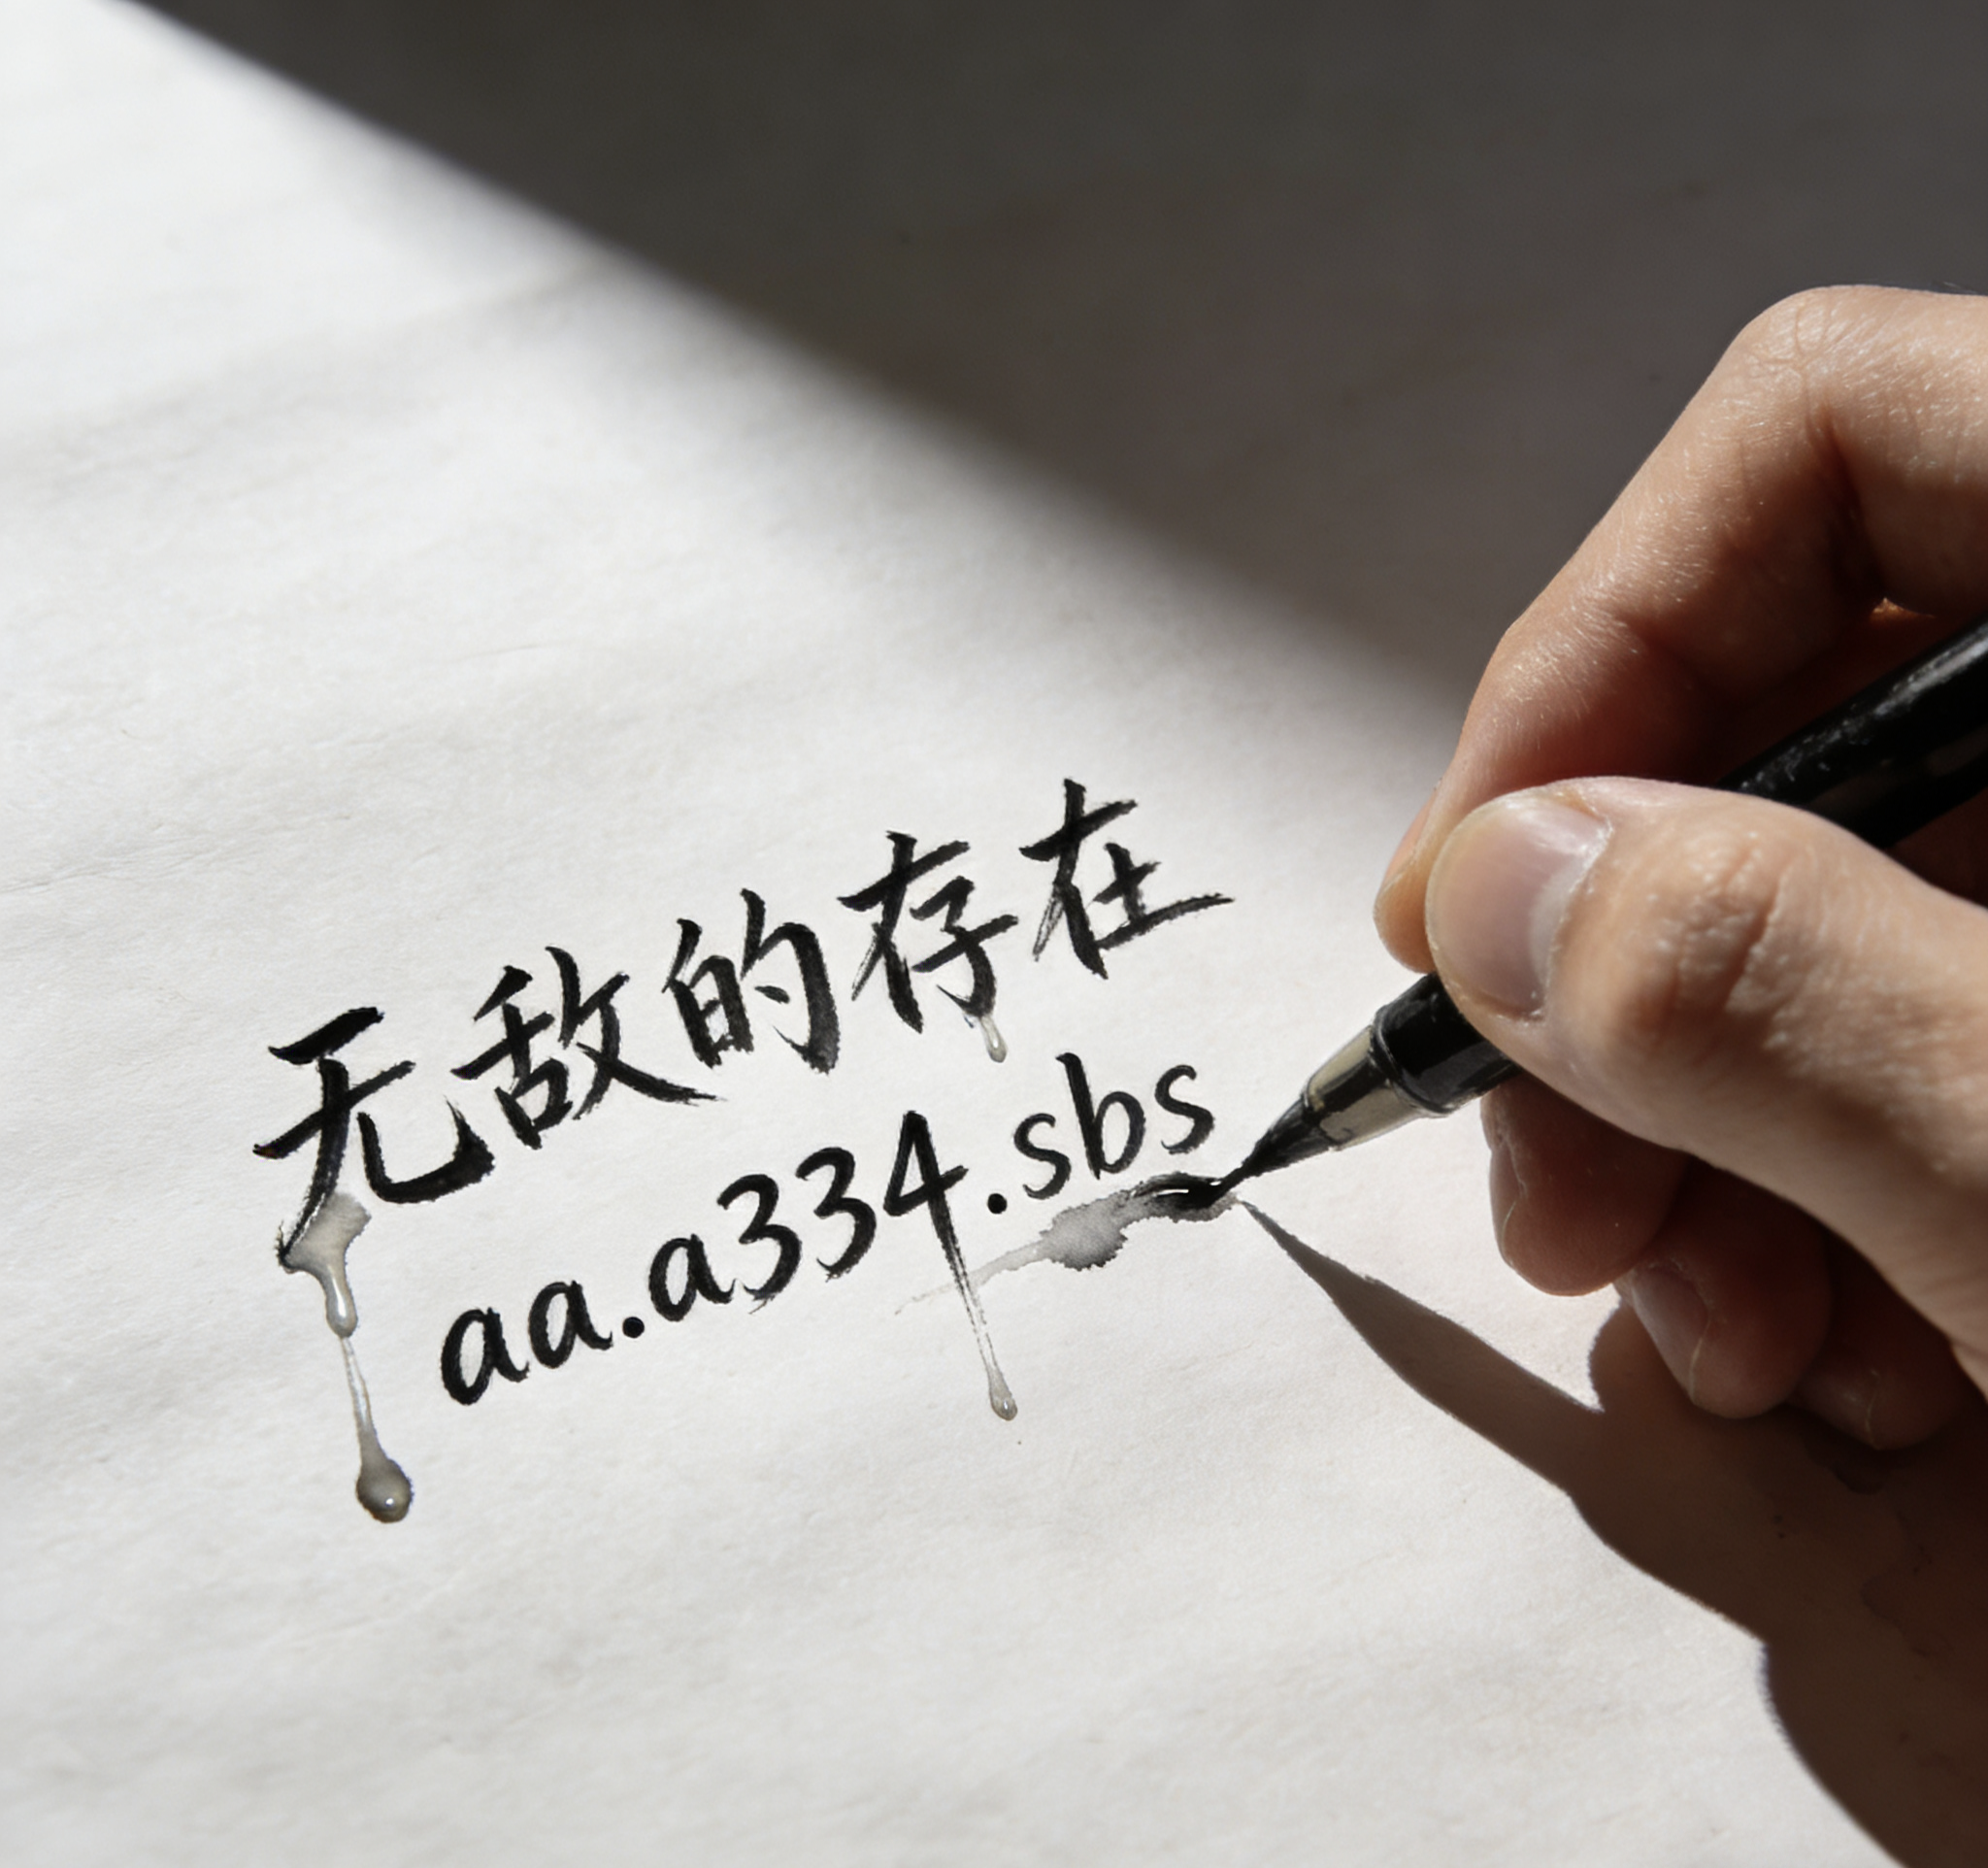 无敌的存在
aa.a334.sbs